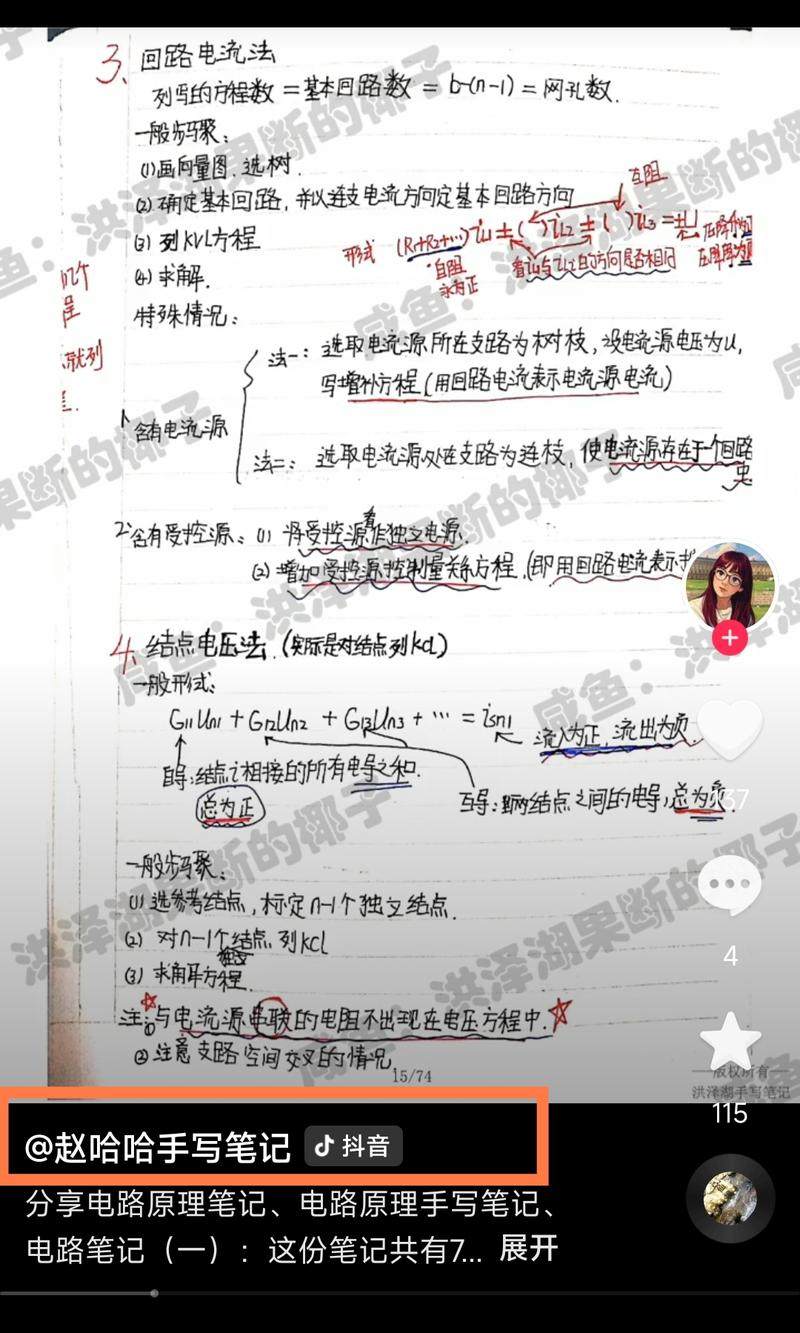 3、回路电流法
列写的方程数 = 基本回路数 = b-(n-1) = 网孔数.
一般步骤:
(1)画向量图、选树.
(2) 确定基本回路, 并以连支电流方向定基本回路方向
互阻
(3) 列KVL方程
形式 (R1+R2+…)iL1±( )iL2±( )iL3=±U
自阻
永为正
(4) 求解.
特殊情况:
几个
程
就列
法一: 选取电流源所在支路为树枝, 设电流源电压为U,
写增补方程(用回路电流表示电流源电流)
1° 含有电流源
法二: 选取电流源所在支路为连枝, 使电流源存在于一个回路
中
2° 含有受控源: (1) 将受控源看作独立电源.
(2) 增加受控源控制量关系方程.(即用回路电流表示
4. 结点电压法.(实际是对结点列kcl)
一般形式:
G11Un1 + G12Un2 + G13Un3 + … = isn1
流入为正, 流出为负
自导:结点i相接的所有电导之和.
总为正
互导: 两结点之间的电导, 总为负.
一般步骤:
(1) 选参考结点, 标定n-1个独立结点.
(2) 对n-1个结点列kcl
(3) 求解方程.
注:①与电流源串联的电阻不出现在电压方程中.
②注意支路空间交叉的情况
15/74
版权所有
洪泽湖手写笔记
咸鱼:洪泽湖果断的椰子
137
4
115
@赵哈哈手写笔记 抖音
分享电路原理笔记、电路原理手写笔记、
电路笔记(一):这份笔记共有7... 展开